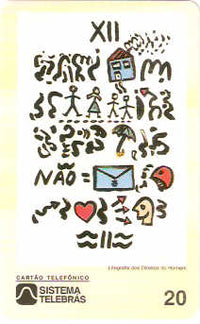 XII
NÃO =
Infografia dos Direitos do Homem
CARTÃO TELEFÔNICO
SISTEMA
TELEBRÁS
20